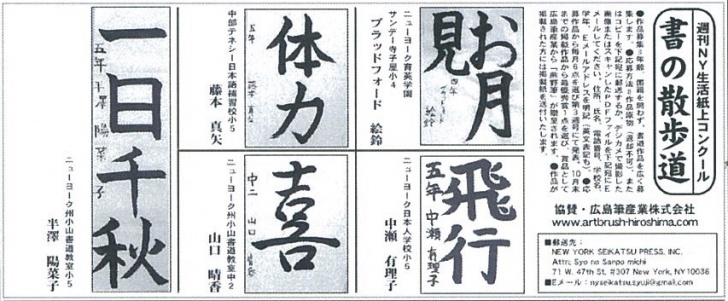 週刊NY生活紙上コンクール
書の散歩道
●作品募集：年齢、国籍を問わず、書道作品を広く募
集します。●応募方法：作品原物（返却不可）、また
はコピーを下記宛に郵送するか、デジカメで撮影した
画像またはスキャンしたPDFファイルを下記宛にE
メールしてください。住所、氏名、電話番号、学校名、
学年、Eメールアドレスを明記（英文表記も）。●応
募作品から毎月5点を選び第3週号にて発表。10月末
までの掲載作品から最優秀賞1点を選び、賞品として
広島筆産業から「熊野筆」が贈呈されます。●作品が
掲載された方には掲載紙を送付いたします。
協賛・広島筆産業株式会社
www.artbrush-hiroshima.com
■郵送先：
NEW YORK SEIKATSU PRESS, INC.
Attn: Syo no Sanpo michi
71 W. 47th St. #307 New York, NY10036
■Eメール：nyseikatsu.syuji@gmail.com
お月見
四年
絵鈴
ニューヨーク育英学園
サンデー寺子屋小4
ブラッドフォード 絵鈴
体力
五年
中部テネシー日本語補習校小5
藤本 真矢
飛行
五年 中瀬 有理子
ニューヨーク日本人学校小5
中瀬 有理子
喜
中二 山口 晴香
ニューヨーク州小山書道教室中2
山口 晴香
一日千秋
五年 半澤 陽菜子
ニューヨーク州小山書道教室小5
半澤 陽菜子